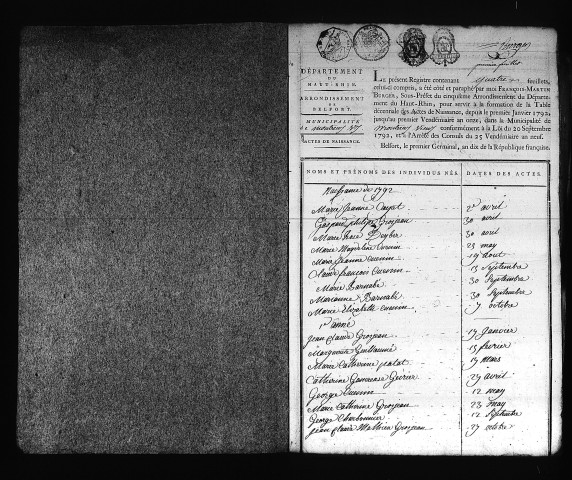 Borger
premier feuillet
DÉPARTEMENT
DU
HAUT-RHIN.
ARRONDISSEMENT
DE
BELFORT.
MUNICIPALITÉ
ACTES DE NAISSANCE.
LE présent Registre contenant quatre feuillets,
celui-ci compris, a été coté et paraphé par moi FRANÇOIS-MARTIN
BORGER, Sous-Préfet du cinquième Arrondissement du Départe-
ment du Haut-Rhin, pour servir à la formation de la Table
décennale des Actes de Naissance, depuis le premier Janvier 1792,
jusqu'au premier Vendémiaire an onze, dans la Municipalité de
conformément à la Loi du 20 Septembre
1792, et à l'Arrêté des Consuls du 25 Vendémiaire an neuf.
Belfort, le premier Germinal, an dix de la République française.
NOMS ET PRÉNOMS DES INDIVIDUS NÉS. DATES DES ACTES.
de 1792
Marie Jeanne avril
Gaspard philippe Grosjean 30 avril
Marie Rose 30 avril
Marie Magdeleine Cuenin 23 may
Marie Jeanne cuenin 19 aout
Claude françois Cuenin 13 Septembre
Marie Barnabé 30 Septembre
Marianne Barnabé 30 Septembre
Marie Elizabette cuenin 7 octobre
1er année
jean Claude Grosjean 19 janvier
Marguerite Guillaume 13 fevrier
Marie Catherine 15 Mars
Catherine 29 avril
George Cuenin 12 may
Marie Catherine Grosjean 23 may
George Charbonnier 12 Septembre
jean Claude Grosjean 27 octobre